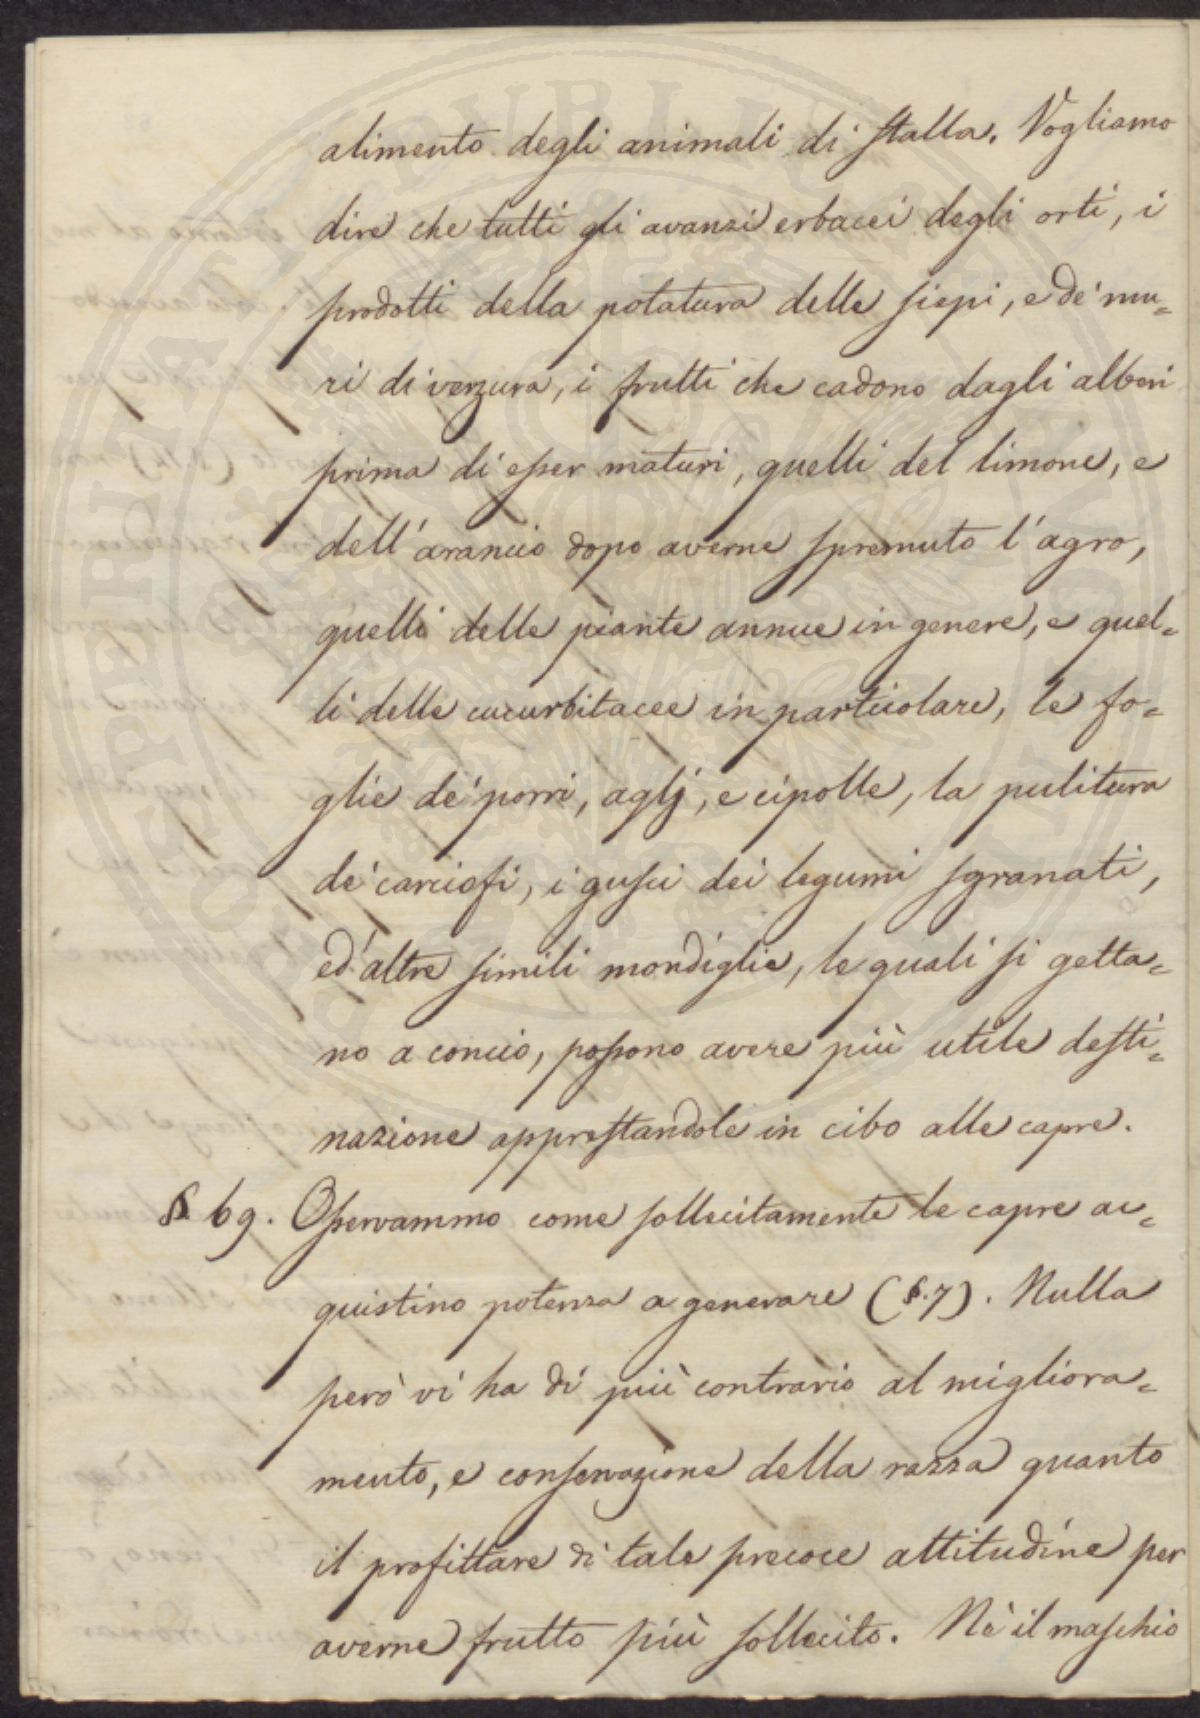 alimento degli animali di stalla. Vogliamo
dire che tutti gli avanzi erbacei degli orti, i
prodotti della potatura delle siepi, e de' mu=
ri di verzura, i frutti che cadono dagli alberi
prima di esser maturi, quelli del limone, e
dell'arancio dopo averne spremuto l'agro,
quelli delle piante annue in genere, e quel=
li delle cucurbitacee in particolare, le fo=
glie de' porri, aglj, e cipolle, la pulitura
de' carciofi, i gusci dei legumi sgranati,
ed altre simili mondiglie, le quali si getta=
no a concio, possono avere più utile desti=
nazione apprestandole in cibo alle capre.
§. 69. Osservammo come sollecitamente le capre ac=
quistino potenza a generare (§.7). Nulla
però vi ha di più contrario al migliora=
mento, e conservazione della razza quanto
il profittare di tale precoce attitudine per
averne frutto più sollecito. Nè il maschio